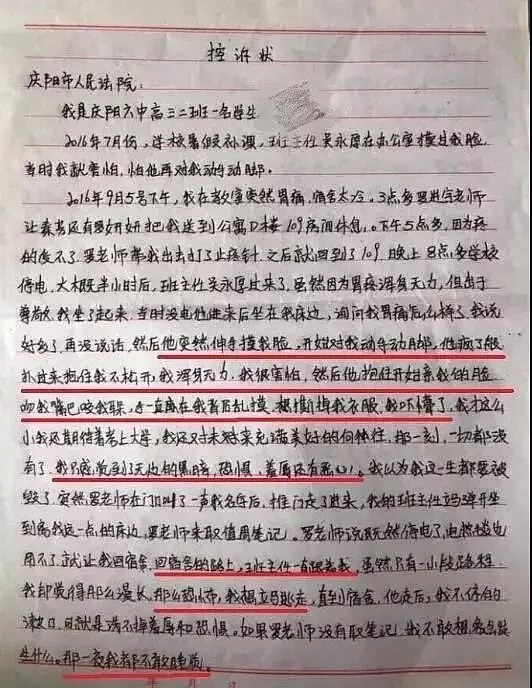 控诉状
庆阳市人民法院:
我是庆阳六中高三二班一名学生
2016年7月份,学校暑假补课,班主任吴永厚在办公室摸过我脸
当时我就害怕,怕他再对我动手动脚。
2016年9月5号下午,我在教室突然胃痛,宿舍太冷。3点多罗进宇老师
让秦考还有罗妍妍把我送到公寓D楼109房间休息。下午5点多,因为疼
的受不了罗老师带我出去打了止疼针,之后就回到了109。晚上8点多学校
停电,大概半小时后,班主任吴永厚过来了。虽然因为胃疼浑身无力,但出于
尊敬,我坐了起来,当时没电他进来后坐在我床边,询问我胃痛怎么样了,我说
好多了,再没说话,然后他突然伸手摸我脸,开始对我动手动脚,他疯了般
扑过来抱住我不松开,我浑身无力,我很害怕,然后他抱住开始亲我的脸
吻我嘴巴咬我耳朵,手一直在我背后乱摸,想撕掉我衣服,我吓懵了,我才这么
小我还期待着考上大学,我还对未来充满美好的向往,那一刻,一切都没
有了,我只感觉到了无边的黑暗,恐惧,羞辱还有恶心。我以为我这一生都要被
毁了,突然罗老师在门口叫了一声我名字后,推门走了进来,我的班主任吗弹开坐
到离我远一点的床边,罗老师来取值周笔记。罗老师说既然停电了,电热毯也
用不了,就让我回宿舍,回宿舍的路上,班主任一直跟着我,虽然只有一小段路程,
我却觉得那么漫长,那么恐怖,我想立马逃走,直到宿舍,他走后,我不停的
漱口,可就是洗不掉羞辱和恐惧。如果罗老师没有取笔记,我不敢想象会发
生什么。那一夜我都不敢睡觉。
年 月 日